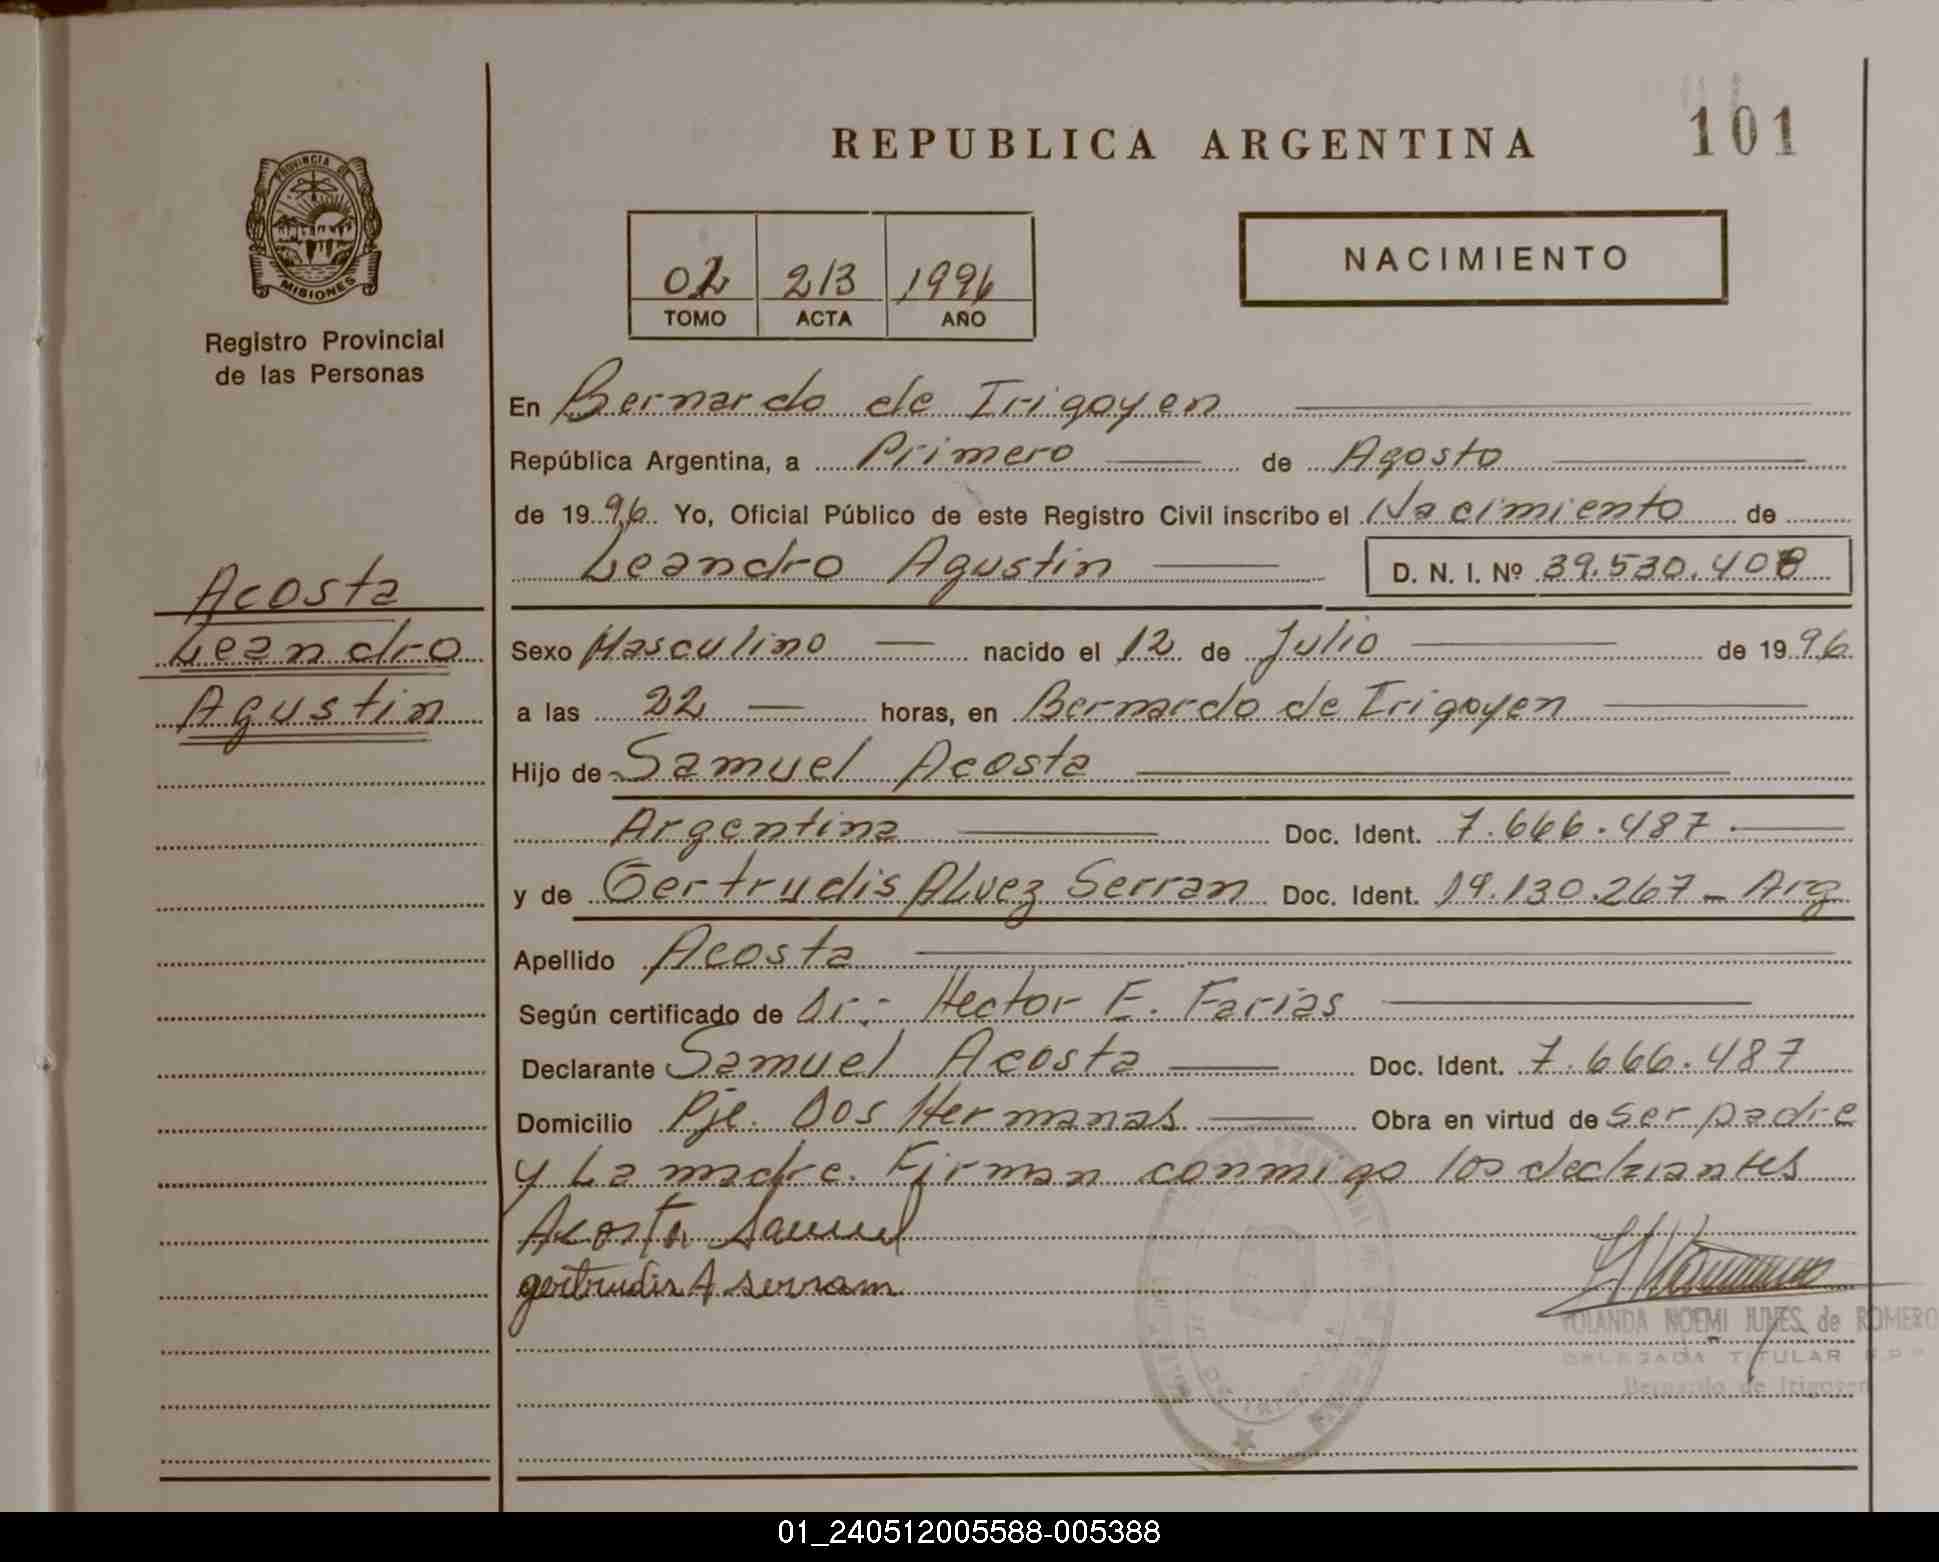 REPUBLICA ARGENTINA
101
PROVINCIA DE
MISIONES
Registro Provincial
de las Personas
02 213 1996
TOMO ACTA AÑO
NACIMIENTO
En Bernardo de Irigoyen
República Argentina, a Primero de Agosto
de 1996 Yo, Oficial Público de este Registro Civil inscribo el Nacimiento de
Leandro Agustin D. N. I. Nº 39.530.408
Acosta
Leandro
Agustin
Sexo Masculino nacido el 12 de Julio de 1996
a las 22 horas, en Bernardo de Irigoyen
Hijo de Samuel Acosta
Argentina Doc. Ident. 7.666.487
y de Gertrudis Alvez Serran Doc. Ident. 19.130.267 - Arg
Apellido Acosta
Según certificado de Dr: Hector E. Farias
Declarante Samuel Acosta Doc. Ident. 7.666.487
Domicilio Pje. Dos Hermanas Obra en virtud de ser padre
y La madre. Firman conmigo los declarantes
Acosta Samuel
gertrudis A serram
YOLANDA NOEMI JUNES de ROMERO
DELEGADA TITULAR R.P.P.
Bernardo de Irigoyen
01_240512005588-005388